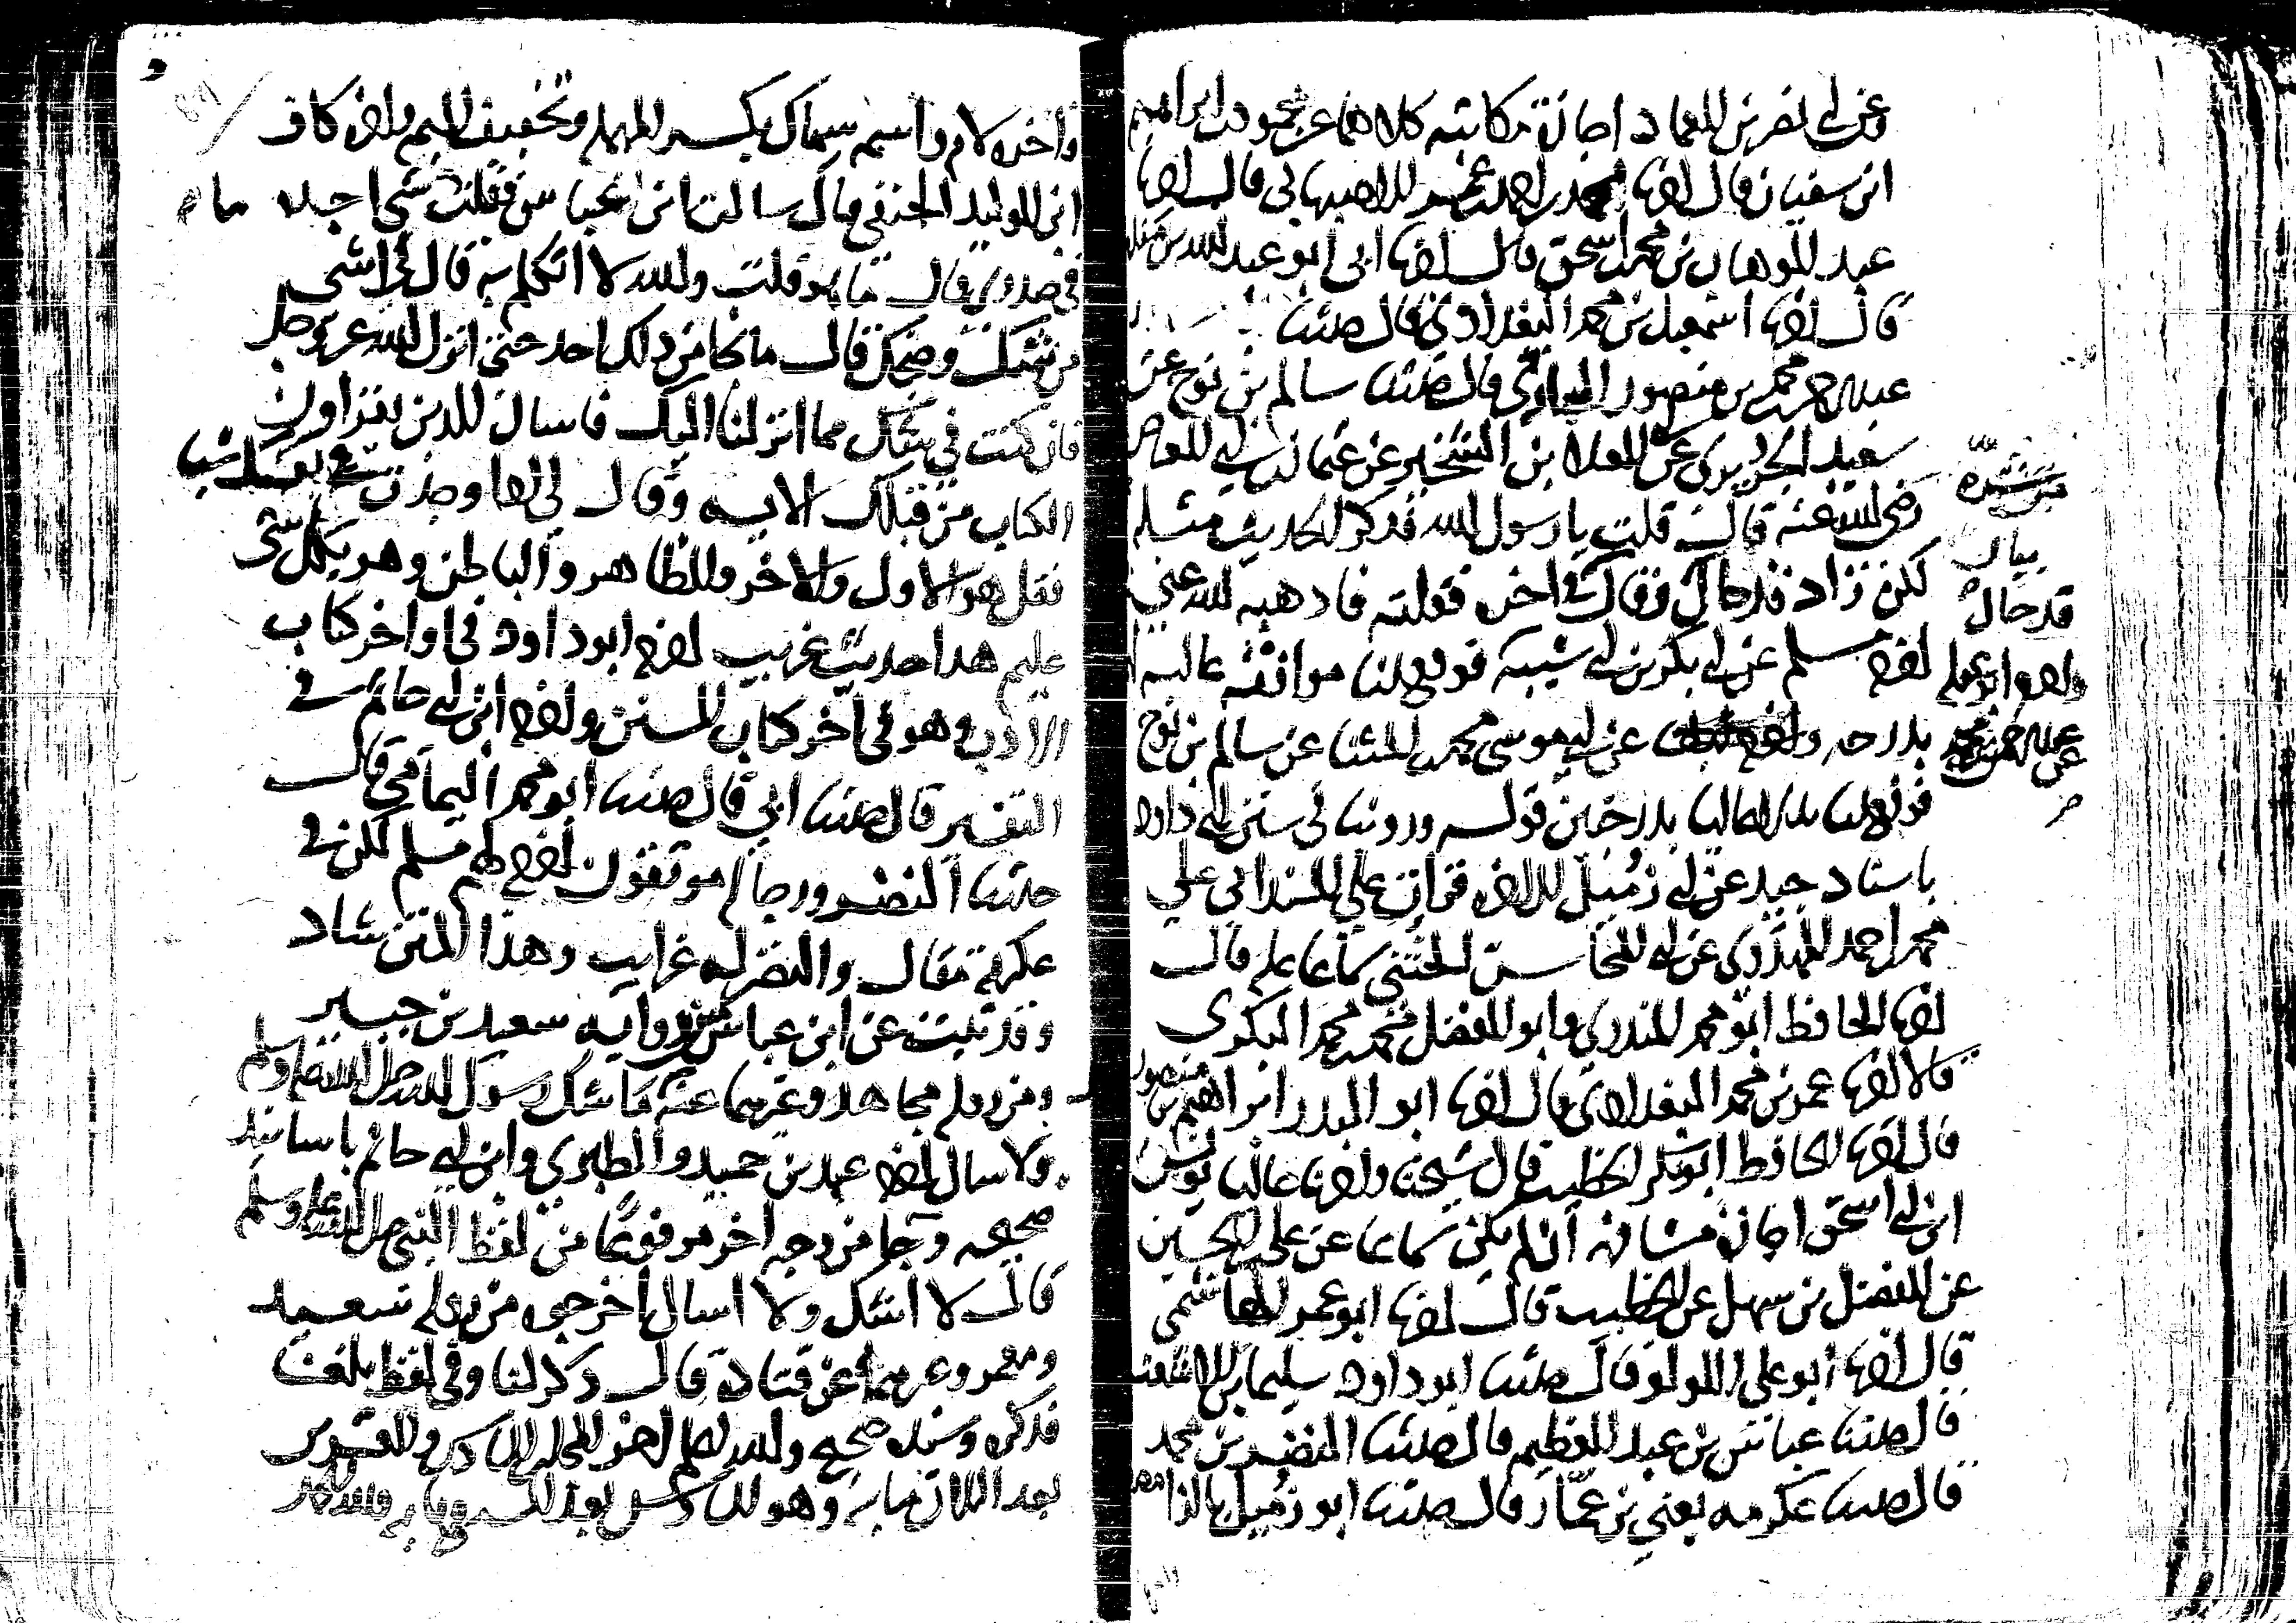 عن أبي نصر بن العماد اجازة مكاتبة كلاهما عن محمود بن ابراهيم
ابن سفيان قال اخبرنا محمد بن احمد بن عمر الاصبهاني قال اخبرنا
عبد الوهاب بن محمد بن اسحق قال اخبرنا ابي ابو عبد الله بن منده
قال اخبرنا اسمعيل بن محمد البغدادي قال حدثنا
عبد الرحمن بن محمد بن منصور الحارثي قال حدثنا سالم بن نوح عن
سعيد الجريري عن العلا بن الشخير عن عثمان بن ابي العاص
رضي الله عنه قال قلت يا رسول الله فذكر الحديث مثله
لكن زاد قد حال وقال في اخره ففعلته فاذهبه الله عني
اخرجه مسلم عن ابي بكر بن ابي شيبة فوقع لنا موافقة عالية
بدرجة عن ابي موسى محمد بن المثنى عن سالم بن نوح
فوقع لنا بدلا عاليا بدرجتين قوله وروينا في سنن ابي داود
باسناد جيد عن ابي زميل الى اخره قرات على المسند ابي علي
محمد بن احمد المهدوي عن ابي المحاسن الختني سماعا عليه قال
اخبرنا الحافظ ابو محمد المنذري وابو الفضل محمد بن محمد البكري
قالا اخبرنا عمر بن محمد البغدادي قال اخبرنا ابو البدر ابراهيم بن منصور
قال اخبرنا الحافظ ابو بكر الخطيب قال شيخنا واخبرنا عاليا يونس
ابن ابي اسحق اجازة مشافهة ان لم يكن سماعا عن علي بن الحسين
عن الفضل بن سهل عن الخطيب قال اخبرنا ابو عمر الهاشمي
قال اخبرنا ابو علي اللولوي قال حدثنا ابو داود سليمان بن الاشعث
قال حدثنا عباس بن عبد العظيم قال حدثنا النضر بن محمد
قال حدثنا عكرمة يعني بن عمار قال حدثنا ابو زميل بالزاي
قد حال
واخرجه ابو يعلى
عن عبد الرحمن بن محمد
واخره لام واسمه سماك بكسر المهملة وتخفيف الميم واخره كاف
ابن الوليد الحنفي قال سالت ابن عباس فقلت شي اجده ما
في صدري قال ما هو قلت والله لا اتكلم به قال لي اشي
من شك وضحك قال ما نجا من ذلك احد حتى انزل الله عز وجل
فان كنت في شك مما انزلنا اليك فاسال الذين يقرؤن
الكتاب من قبلك الاية وقال لي اذا وجدت في نفسك شيا
فقل هو الاول والاخر والظاهر والباطن وهو بكل شي
عليم هذا حديث غريب اخرجه ابو داود في اواخر كتاب
الادب وهو في اخر كتاب السنن واخرجه ابن ابي حاتم في
التفسير قال حدثنا ابي قال حدثنا ابو محمد اليمامي قال
حدثنا النضر ورجاله موثقون اخرج لهم مسلم لكن في
عكرمة مقال والنضر له غرايب وهذا المتن شاذ
وقد ثبت عن ابن عباس من رواية سعيد بن جبير
ومن رواية مجاهد وغيرهما عنه ما شك رسول الله صلى الله عليه وسلم
ولا سال اخرجه عبد بن حميد والطبري وابن ابي حاتم باسانيد
صحيحة وجا من وجه اخر مرفوعا من لفظ النبي صلى الله عليه وسلم
قال لا اشك ولا اسال اخرجوه من رواية سعيد
ومعمر وغيرهما عن قتادة قال ذكر لنا وفي لفظ بلغنا
فذكره وسنده صحيح والله اعلم اخر المجلس الحادي والعشرين
بعد الثلاث ماية وهو